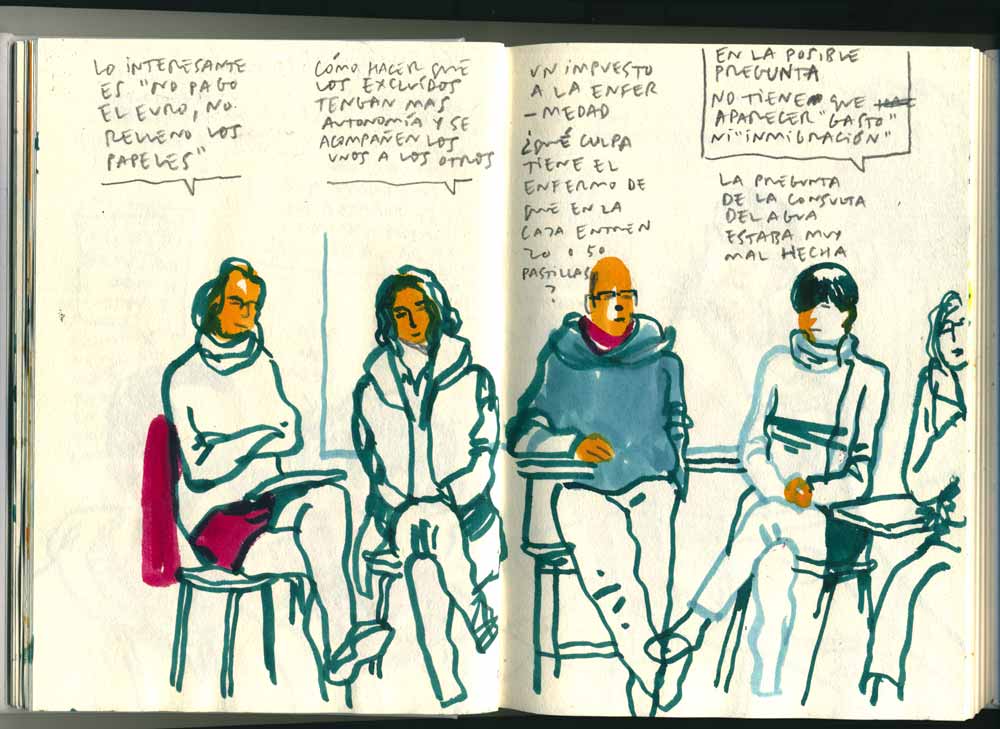 LO INTERESANTE
ES "NO PAGO
EL EURO, NO
RELLENO LOS
PAPELES"
CÓMO HACER QUE
LOS EXCLUÍDOS
TENGAN MAS
AUTONOMÍA Y SE
ACOMPAÑEN LOS
UNOS A LOS OTROS
UN IMPUESTO
A LA ENFER
- MEDAD
¿QUÉ CULPA
TIENE EL
ENFERMO DE
QUE EN LA
CAJA ENTREN
20 O 50
PASTILLAS
?
EN LA POSIBLE
PREGUNTA
NO TIENE QUE
APARECER "GASTO"
NI "INMIGRACIÓN"
LA PREGUNTA
DE LA CONSULTA
DEL AGUA
ESTABA MUY
MAL HECHA